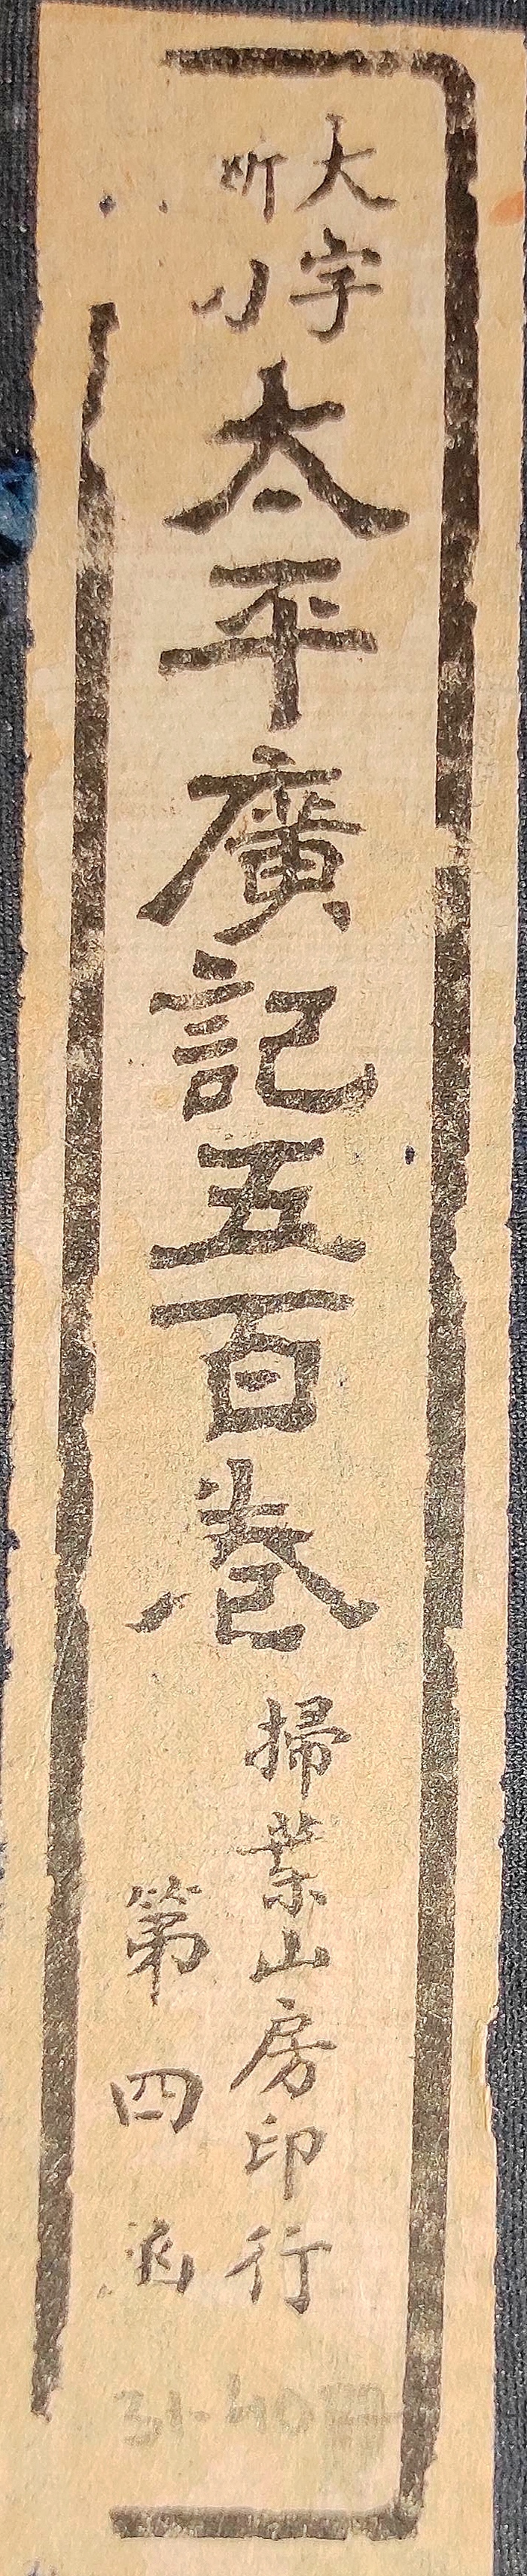 大字
斫刀
太平廣記五百卷
掃葉山房印行
第四函
31-40冊